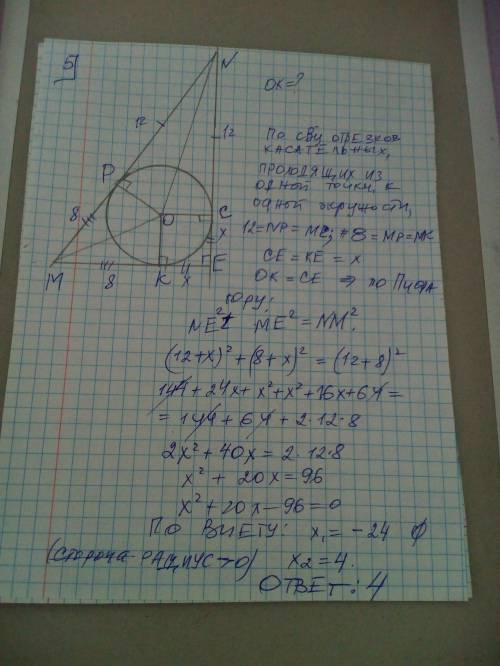 5)
N
OK=?
12
12
По св-у отрезков
касательных,
проходящих из
одной точки к
одной окружности,
P
8
O
C
x
12=NP=NC; 8=MP=MK
CE=KE=x
OK=CE ⇒ по Пифа
M
8
K
x
E
гору:
NE²+ ME²=NM².
(12+x)²+(8+x)²=(12+8)²
144+24x+x²+x²+16x+64=
=144+64+2·12·8
2x²+40x=2·12·8
x²+20x=96
x²+20x-96=0
По Виету: x₁=-24 ∅
(сторона-радиус>0) x₂=4.
Ответ: 4